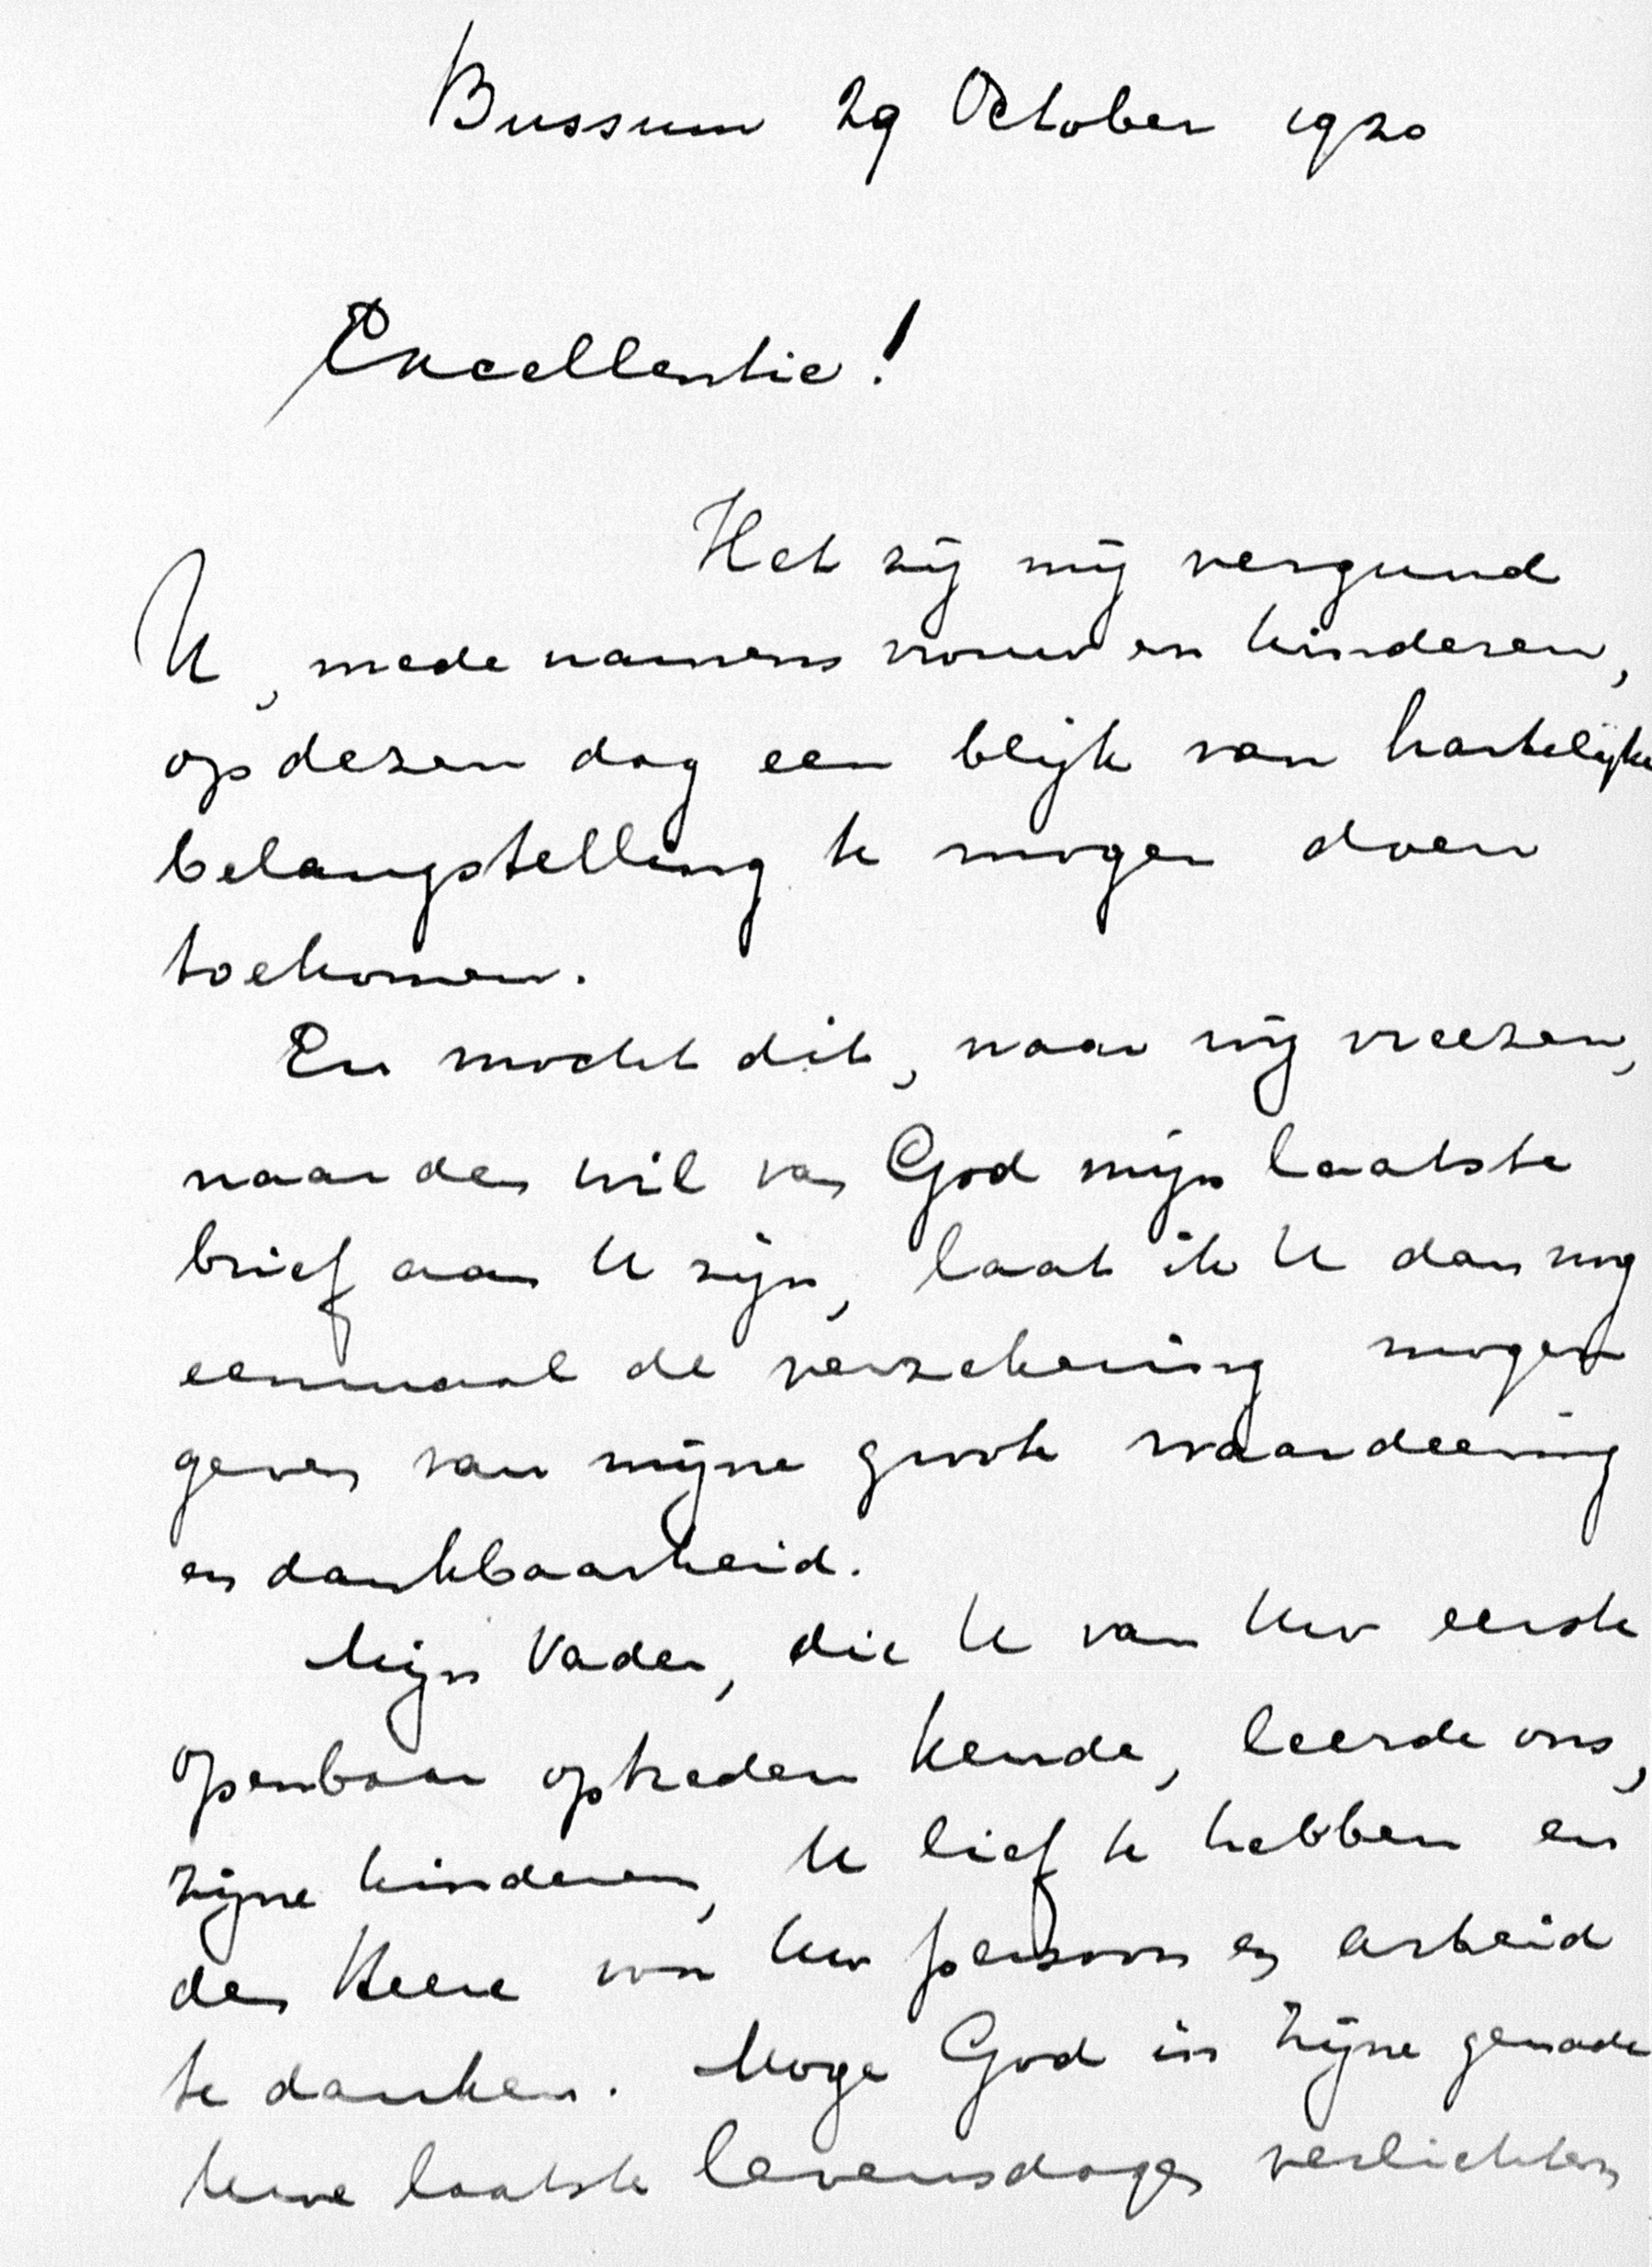 Bussum 29 October 1920
Excellentie!
Het zij mij vergund
U, mede namens vrouw en kinderen,
op dezen dag een blijk van hartelijke
belangstelling te mogen doen
toekomen.
En mocht dit, naar wij vreezen,
naar den wil van God mijn laatste
brief aan U zijn, laat ik U dan nog
eenmaal de verzekering mogen
geven van mijne groote waardeering
en dankbaarheid.
Mijn Vader, die U van Uw eerste
openbaar optreden kende, leerde ons,
zijne kinderen, U lief te hebben en
den Heere voor Uw persoon en arbeid
te danken. Moge God in Zijne genade
Uwe laatste levensdagen verlichten